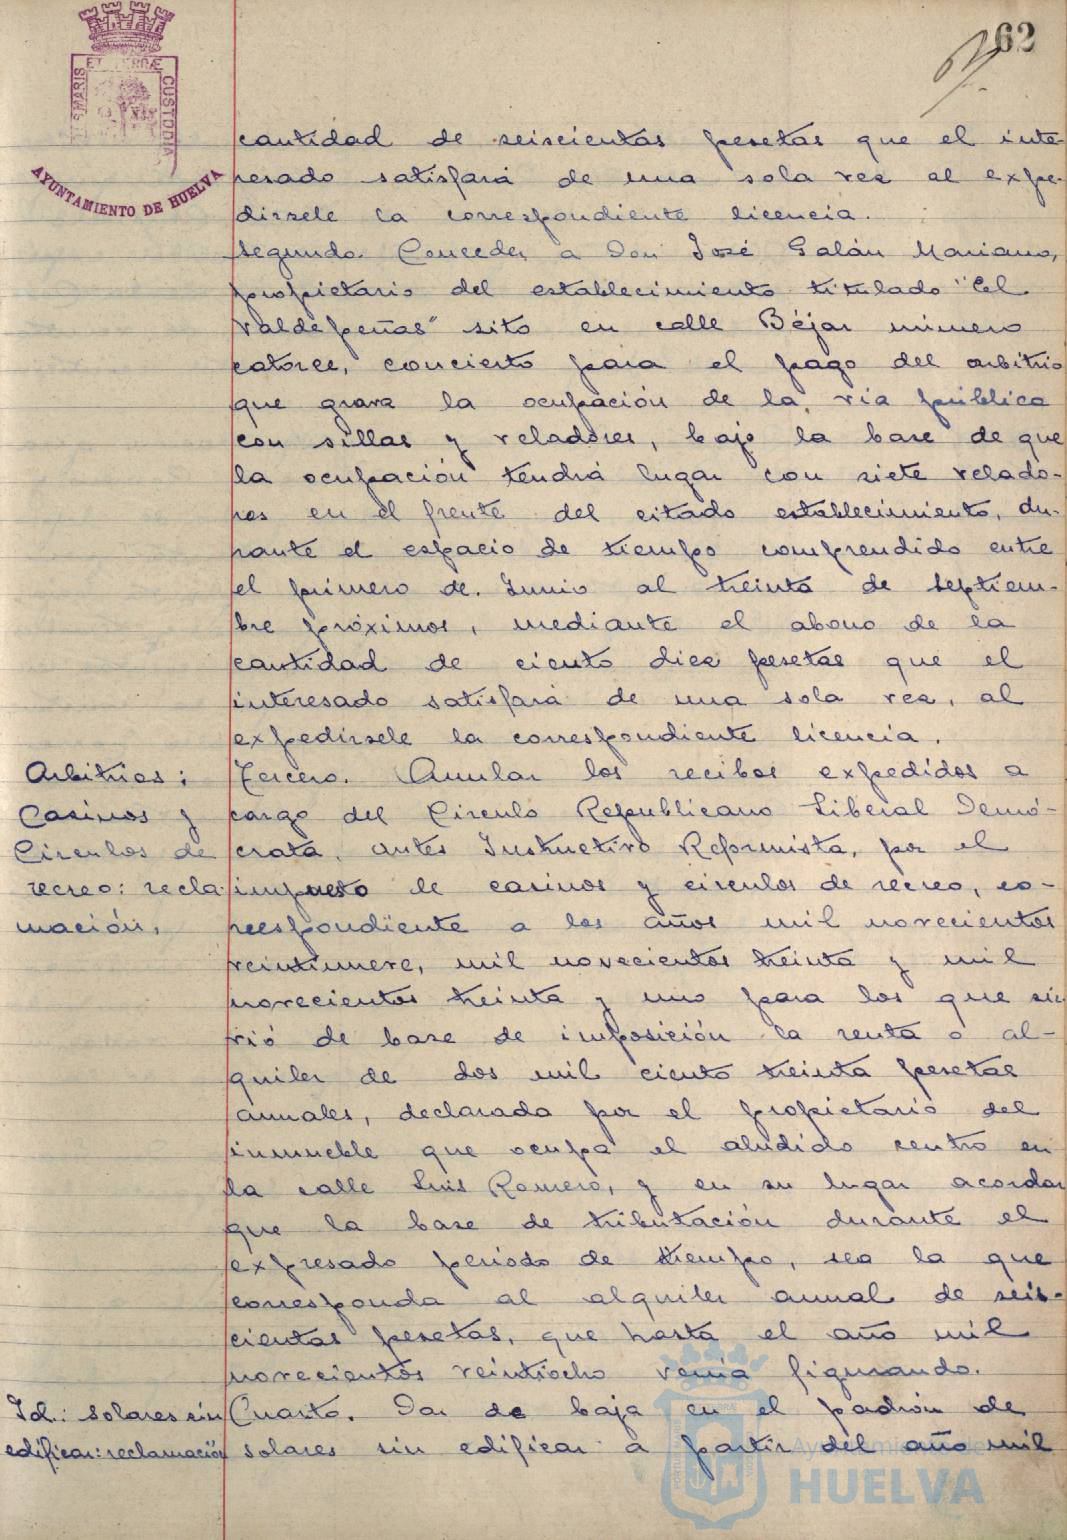 62
cantidad de seiscientas pesetas que el inte-
resado satisfará de una sola vez al expe-
dirsele la correspondiente licencia.
Segundo. Conceder a Don José Galán Mariano,
propietario del establecimiento titulado "El
Valdepeñas" sito en calle Béjar número
catorce, concierto para el pago del arbitrio
que grava la ocupación de la vía pública
con sillas y veladores, bajo la base de que
la ocupación tendrá lugar con siete velado-
res en el frente del citado establecimiento, du-
rante el espacio de tiempo comprendido entre
el primero de Junio al treinta de Septiem-
bre próximos, mediante el abono de la
cantidad de ciento diez pesetas que el
interesado satisfará de una sola vez, al
expedirsele la correspondiente licencia.
Arbitrios:
Casinos y
Circulos de
recreo: recla-
mación.
Tercero. Anular los recibos expedidos a
cargo del Circulo Republicano Liberal Demó-
crata, antes Instructivo Reformista, por el
impuesto de casinos y circulos de recreo, co-
rrespondiente a los años mil novecientos
veintinueve, mil novecientos treinta y mil
novecientos treinta y uno para los que sir-
vió de base de imposición la renta o al-
quiler de dos mil ciento treinta pesetas
anuales, declarada por el propietario del
inmueble que ocupa el aludido centro en
la calle Luis Romero, y en su lugar acordar
que la base de tributación durante el
expresado periodo de tiempo, sea la que
corresponda al alquiler anual de seis-
cientas pesetas, que hasta el año mil
novecientos veintiocho venia figurando.
Id.: solares sin
edificar: reclamación
Cuarto. Dar de baja en el padrón de
solares sin edificar a partir del año mil
ET TERRAE
MARIS
CUSTODIA
AYUNTAMIENTO DE HUELVA
Ayuntamiento de
HUELVA